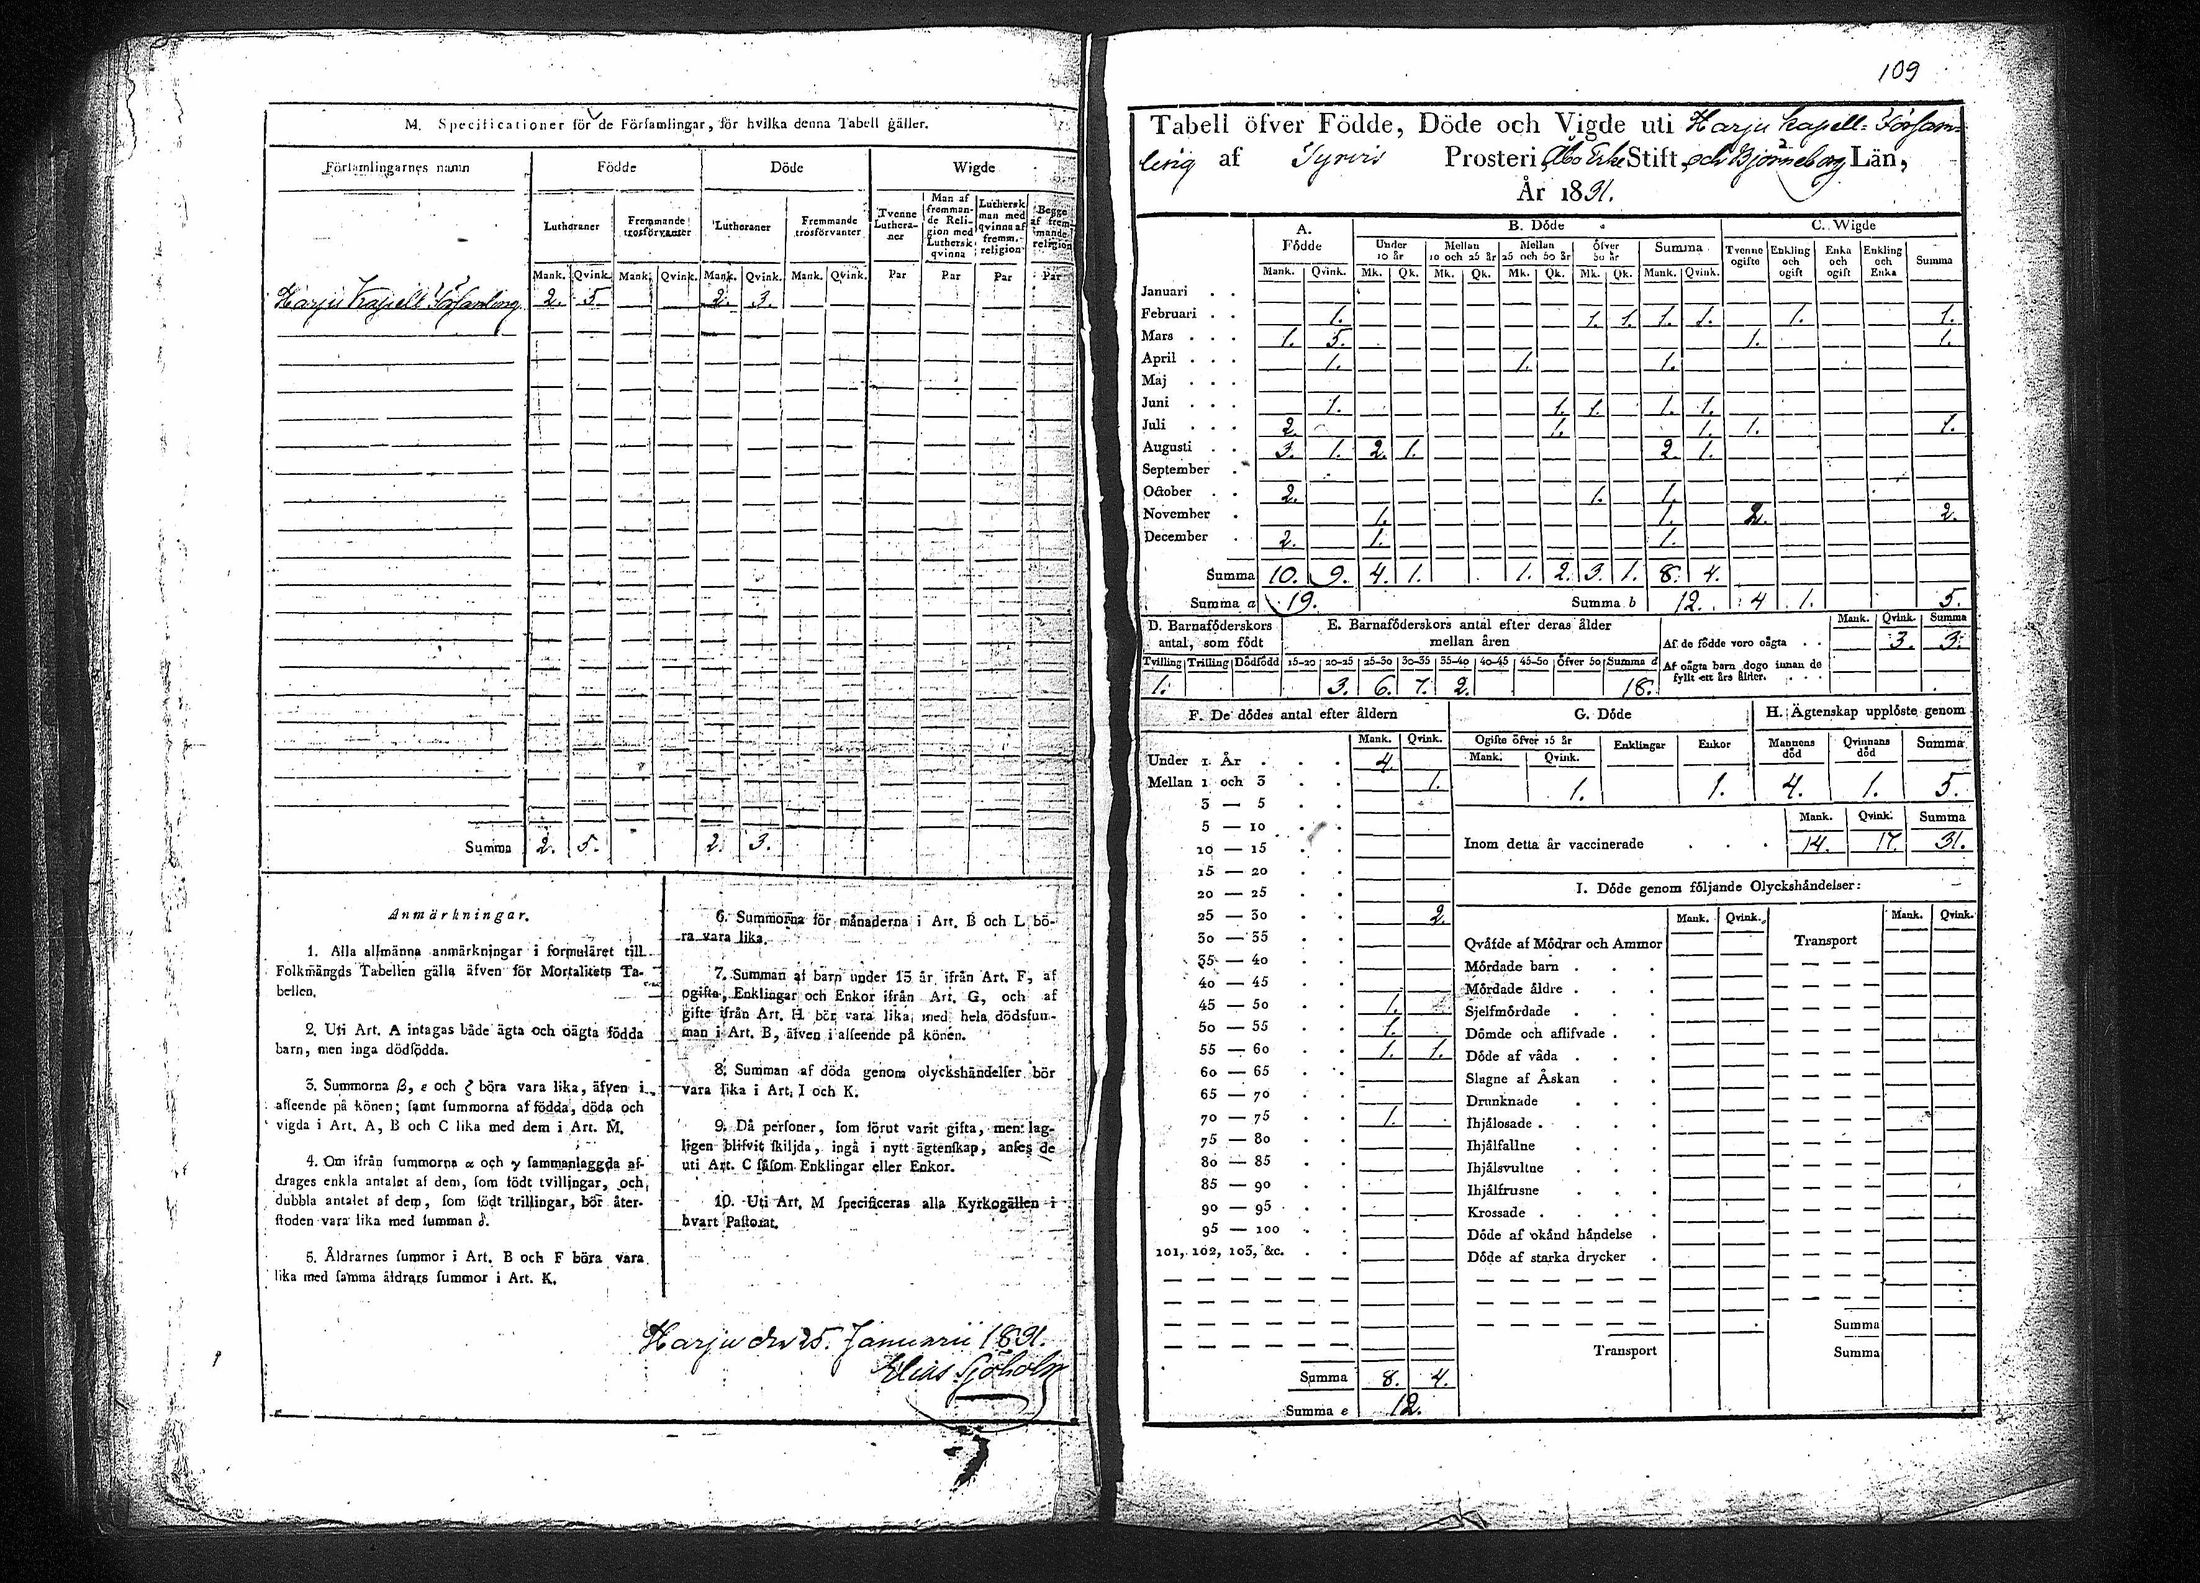 M. Specificationer för de Församlingar, för hvilka denna Tabell gäller.
Församlingarnes namn | Födde | Döde | Wigde
Lutheraner | Fremmande trosförvanter | Lutheraner | Fremmande trosförvanter | Tvenne Lutheraner | Man af fremmande Religion med Luthersk qvinna | Luthersk man med qvinna af fremm. religion | Begge af fremmande religion
Mank. | Qvink. | Mank. | Qvink. | Mank. | Qvink. | Mank. | Qvink. | Par | Par | Par | Par
Harju Kapell Församling | 2. | 5 | 2. | 3.
Summa | 2. | 5. | 2. | 3.
Anmärkningar.
1. Alla allmänna anmärkningar i formuläret till
Folkmängds Tabellen gälla äfven för Mortalitets Ta-
bellen.
2. Uti Art. A intagas både ägta och oägta födda
barn, men inga dödfödda.
3. Summorna β, ε och ζ böra vara lika, äfven i
afseende på könen; samt summorna af födda, döda och
vigda i Art. A, B och C lika med dem i Art. M.
4. Om ifrån summorna α och γ sammanlaggda af-
drages enkla antalet af dem, som födt tvillingar, och
dubbla antalet af dem, som födt trillingar, bör åter-
stoden vara lika med summan δ.
5. Åldrarnes summor i Art. B och F böra vara
lika med samma åldrars summor i Art. K.
6. Summorna för månaderna i Art. B och L bö-
ra vara lika.
7. Summan af barn under 15 år ifrån Art. F, af
ogifta, Enklingar och Enkor ifrån Art. G, och af
gifte ifrån Art. H bör vara lika med hela dödssum-
man i Art. B, äfven i afseende på könen.
8. Summan af döda genom olyckshändelser bör
vara lika i Art. I och K.
9. Då personer, som förut varit gifta, men lag-
ligen blifvit skiljda, ingå i nytt ägtenskap, anses de
uti Art. C såsom Enklingar eller Enkor.
10. Uti Art. M specificeras alla Kyrkogällen i
hvart Pastorat.
Harju den 25. Januarii 1831.
Elias Sjöholm
109
Tabell öfver Födde, Döde och Vigde uti Harju Kapell-Försam-
ling af Tyrvis Prosteri, Åbo Erke Stift, och Björneborg Län,
År 1831.
A. Födde | B. Döde | C. Wigde
Under 10 år | Mellan 10 och 25 år | Mellan 25 och 50 år | Öfver 50 år | Summa | Tvenne ogifte | Enkling och ogift | Enka och ogift | Enkling och Enka | Summa
Mank. | Qvink. | Mk. | Qk. | Mk. | Qk. | Mk. | Qk. | Mk. | Qk. | Mank. | Qvink.
Januari
Februari | 1. | 1. | 1. | 1. | 1. | 1. | 1.
Mars | 1. | 5. | 1. | 1.
April | 1. | 1. | 1.
Maj
Juni | 1. | 1. | 1. | 1. | 1.
Juli | 2. | 1. | 1. | 1. | 1.
Augusti | 3. | 1. | 2. | 1. | 2. | 1.
September
October | 2. | 1. | 1.
November | 1. | 1. | 2. | 2.
December | 2. | 1. | 1.
Summa | 10. | 9. | 4. | 1. | 1. | 2. | 3. | 1. | 8. | 4.
Summa a | 19. | Summa b | 12. | 4 | 1. | 5.
D. Barnaföderskors antal, som födt
Tvilling | Trilling | Dödfödd
1.
E. Barnaföderskors antal efter deras ålder mellan åren
15-20 | 20-25 | 25-30 | 30-35 | 35-40 | 40-45 | 45-50 | Öfver 50 | Summa d
3. | 6. | 7. | 2. | 18.
Mank. | Qvink. | Summa
Af de födde voro oägta | 3. | 3.
Af oägta barn dogo innan de fyllt ett års ålder.
F. De dödes antal efter åldern
Mank. | Qvink.
Under 1 År | 4.
Mellan 1 och 3 | 1.
3 — 5
5 — 10
10 — 15
15 — 20
20 — 25
25 — 30 | 2.
30 — 35
35 — 40
40 — 45
45 — 50 | 1.
50 — 55 | 1.
55 — 60 | 1. | 1.
60 — 65
65 — 70
70 — 75 | 1.
75 — 80
80 — 85
85 — 90
90 — 95
95 — 100
101, 102, 103, &c.
Summa | 8. | 4.
Summa e | 12.
G. Döde
Ogifte öfver 15 år | Enklingar | Enkor
Mank. | Qvink.
1. | 1.
H. Ägtenskap upplöste genom
Mannens död | Qvinnans död | Summa
4. | 1. | 5.
Mank. | Qvink. | Summa
Inom detta år vaccinerade | 14. | 17. | 31.
I. Döde genom följande Olyckshändelser:
Mank. | Qvink. | Mank. | Qvink.
Qväfde af Mödrar och Ammor | Transport
Mördade barn
Mördade äldre
Sjelfmördade
Dömde och aflifvade
Döde af våda
Slagne af Åskan
Drunknade
Ihjälosade
Ihjälfallne
Ihjälsvultne
Ihjälfrusne
Krossade
Döde af okänd händelse
Döde af starka drycker
Summa
Transport | Summa